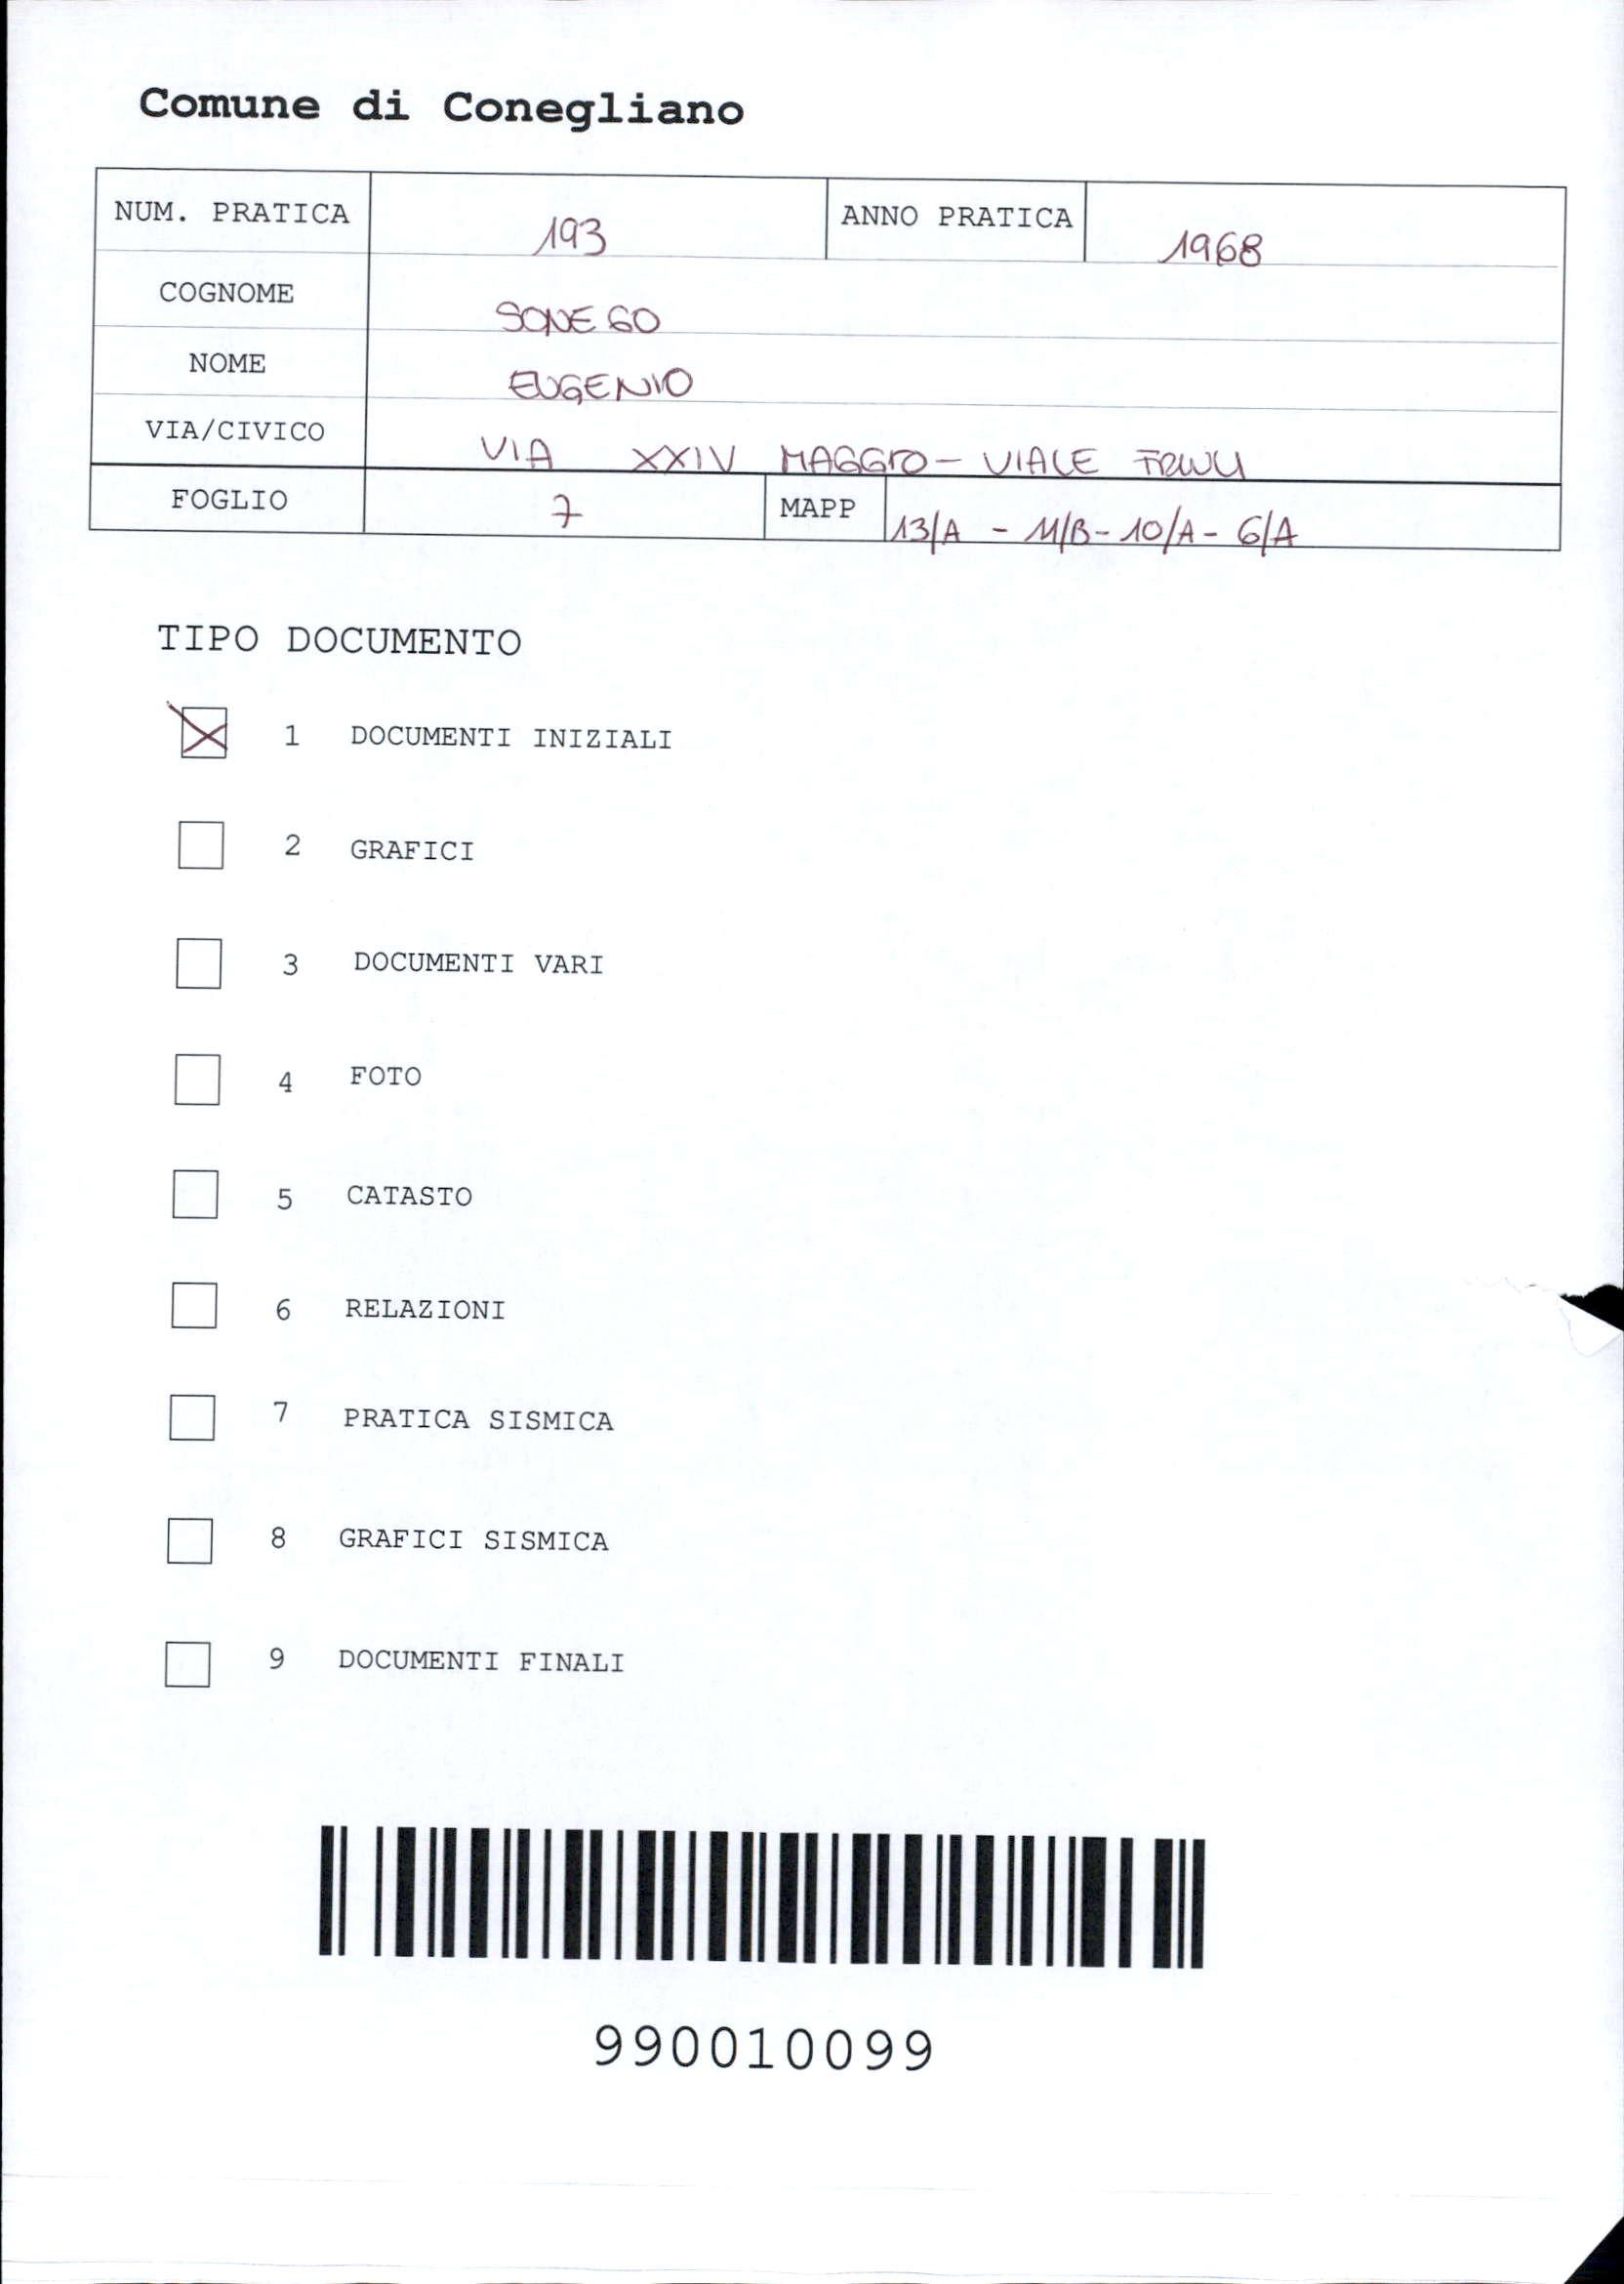 Comune di Conegliano
NUM. PRATICA 193 ANNO PRATICA 1968
COGNOME SONEGO
NOME EUGENIO
VIA/CIVICO VIA XXIV MAGGIO - VIALE FRIULI
FOGLIO 7 MAPP 13/A - 11/B - 10/A - 6/A
TIPO DOCUMENTO
1 DOCUMENTI INIZIALI
2 GRAFICI
3 DOCUMENTI VARI
4 FOTO
5 CATASTO
6 RELAZIONI
7 PRATICA SISMICA
8 GRAFICI SISMICA
9 DOCUMENTI FINALI
990010099